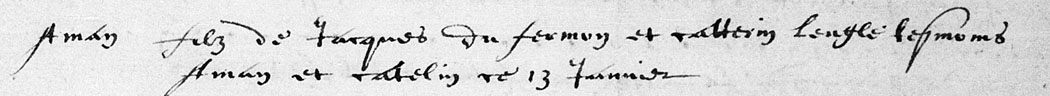 Aman filz de Jacques du fermon et catterin lengle tesmoins
Aman et catelin ce 13 Janvier